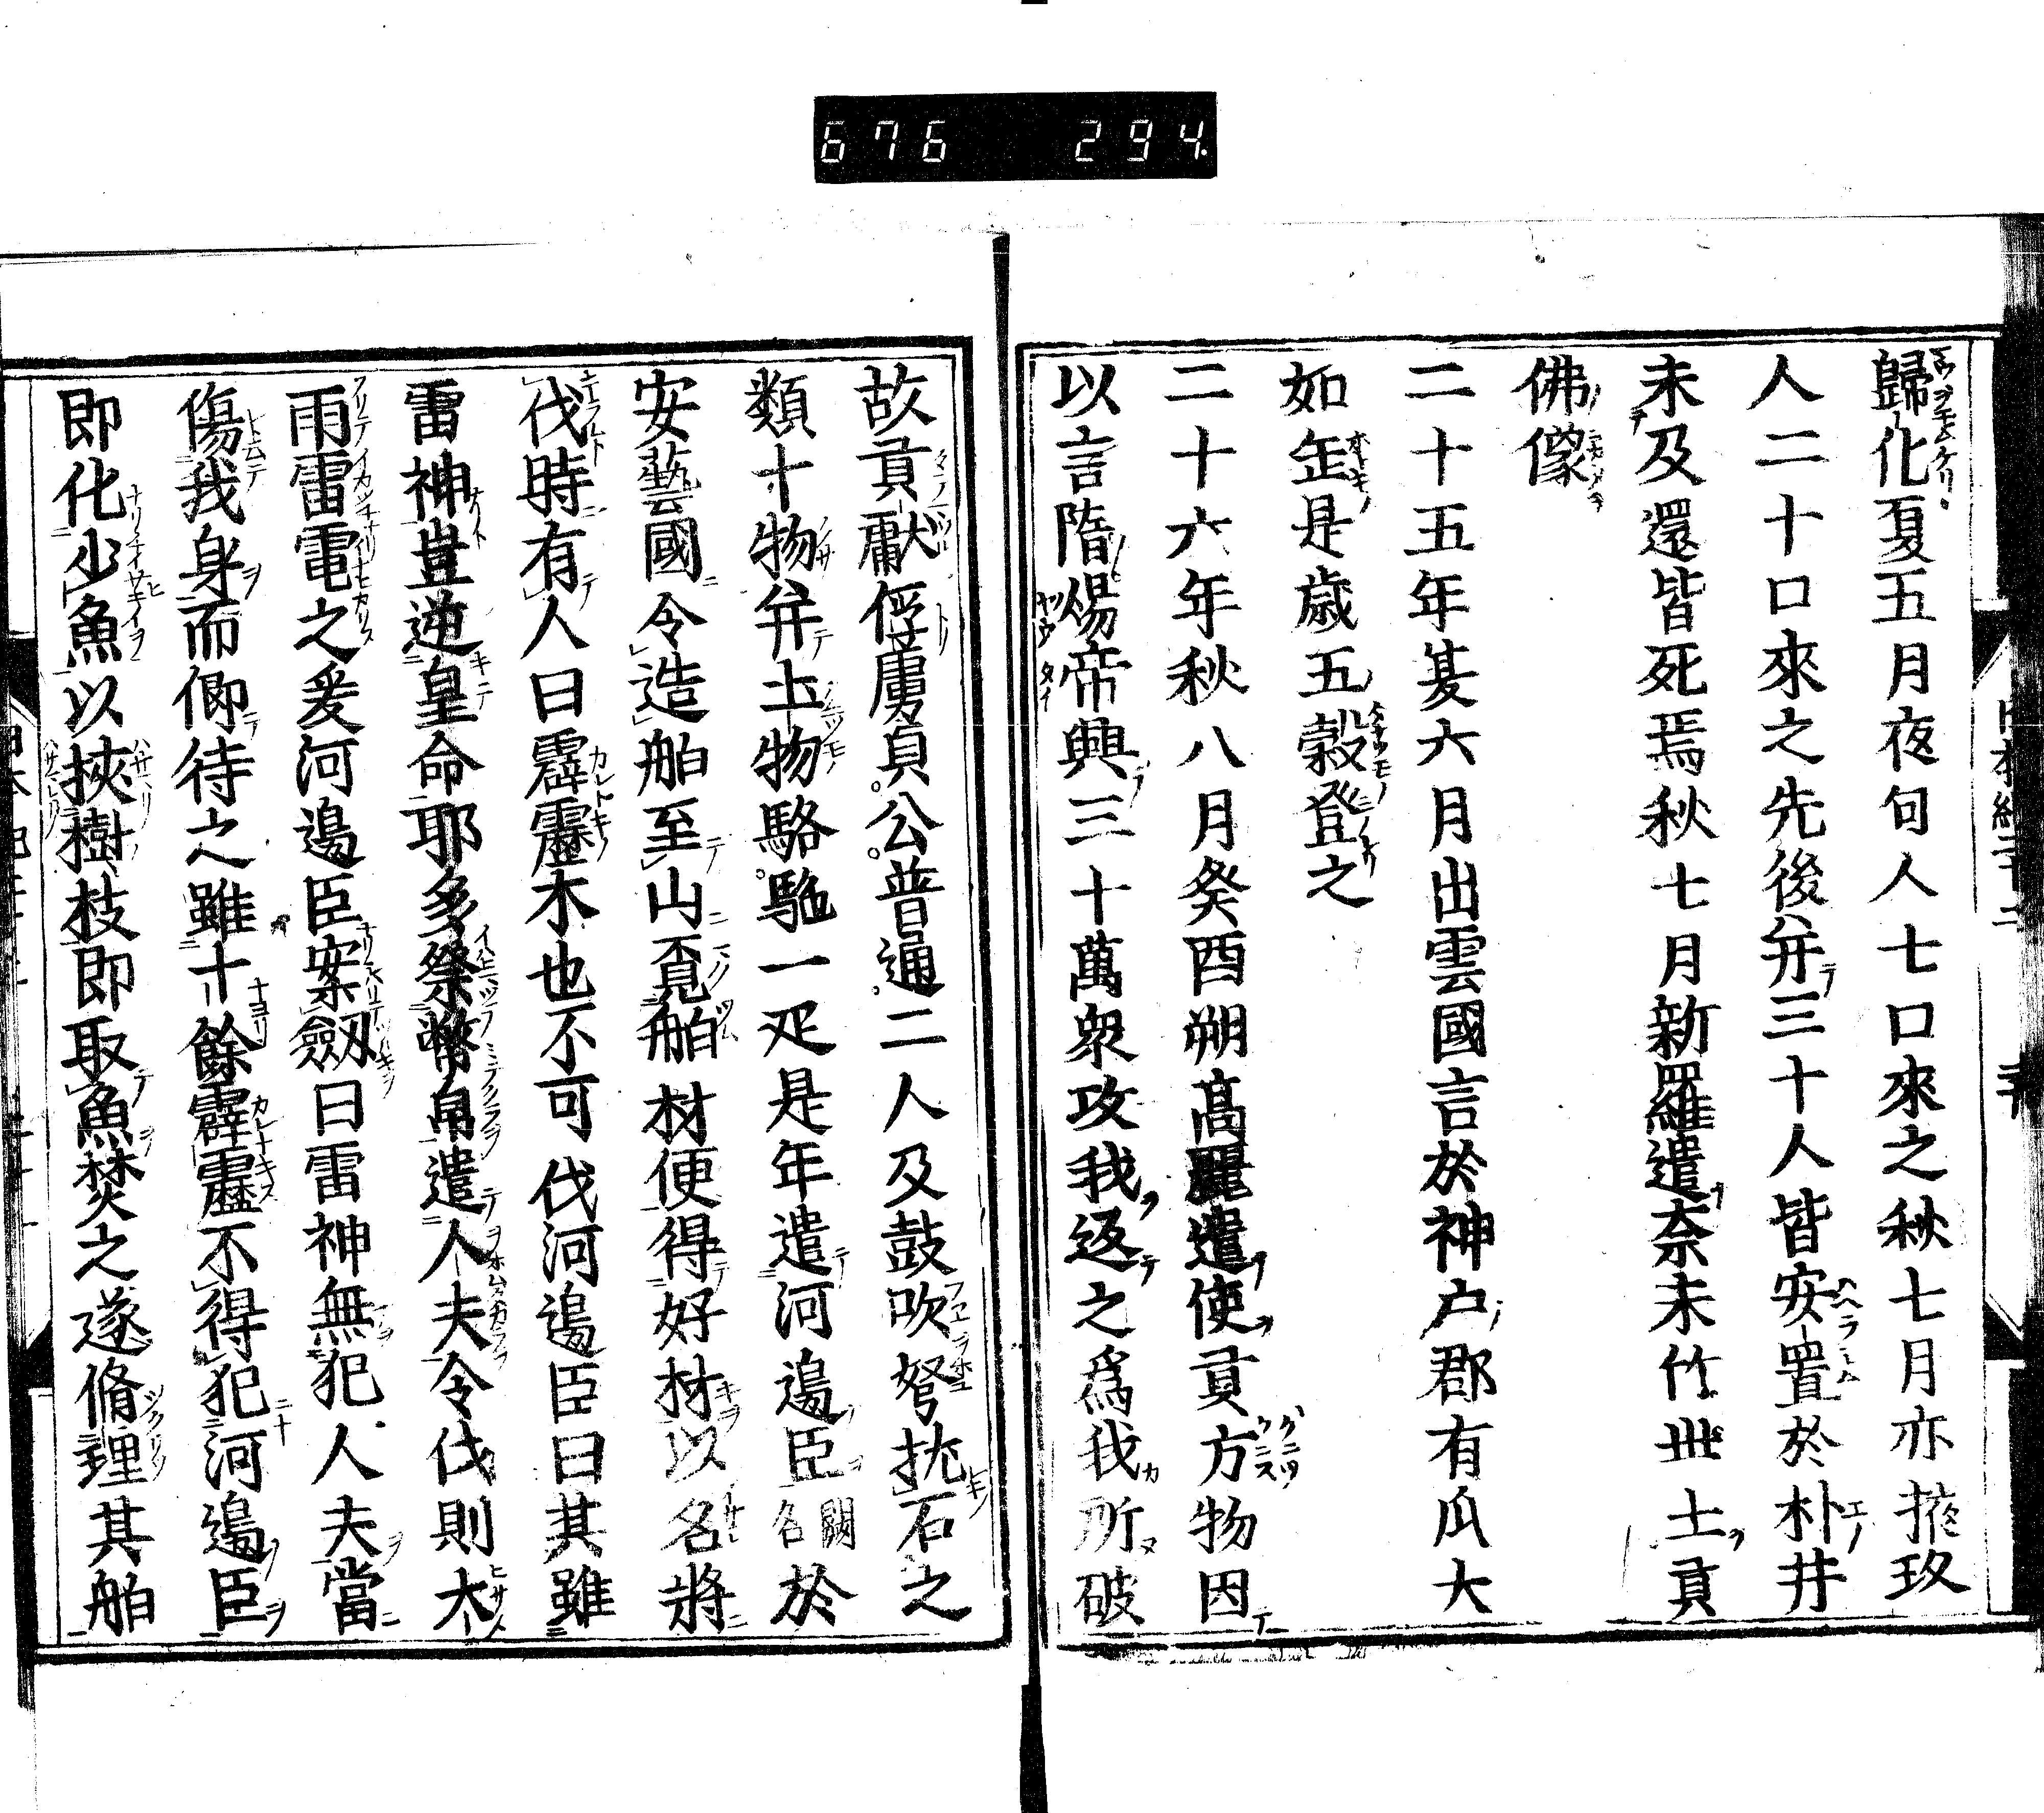 676 294
歸化夏五月夜句人七口來之秋七月亦掖玖
人二十口來之先後并三十人皆安置於朴井
未及還皆死焉秋七月新羅遣奈末竹世士貢
佛像
二十五年夏六月出雲國言於神戸郡有瓜大
如缶是歳五穀登之
二十六年秋八月癸酉朔髙麗遣使貢方物因
以言隋煬帝興三十萬衆攻我返之爲我所破
故貢獻俘虜貞公普通二人及鼓吹弩抛石之
類十物并土物駱駝一疋是年遣河邊臣闕名於
安藝國令造舶至山覓舶材便得好材以名將
伐時有人曰霹靂木也不可伐河邊臣曰其雖
雷神豈逆皇命耶多祭幣帛遣人夫令伐則大
雨雷電之爰河邊臣案劔曰雷神無犯人夫當
傷我身而仰待之雖十餘霹靂不得犯河邊臣
即化少魚以挾樹枝即取魚焚之遂脩理其舶